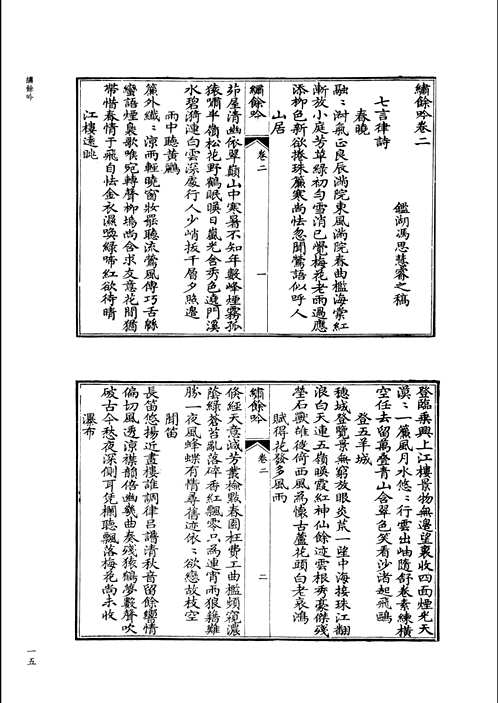 繡餘吟
繡餘吟卷二
鑑湖馮思慧睿之稿
七言律詩
春曉
融:淑氣正良辰滿院東風滿院春曲檻海棠紅
漸放小庭芳草綠初勻雪消已覺梅花老雨過應
添柳色新欲捲珠簾寒尚怯忽聞鶯語似呼人
山居
繡餘吟
卷二
一
茆屋清幽依翠巔山中寒暑不知年數峰煙霧孤
猿嘯半嶺松花野鶴眠暎日嵐光含秀色遶門溪
水碧漪漣白雲深處行人少峭拔千層夕照邊
雨中聽黃鸝
簾外纖:涼雨輕曉窗妝罷聽流鶯風傳巧舌緜
蠻語煙裊歌喉宛轉聲柳塢尚含求友意花間猶
帶惜春情于飛自怯金衣濕喚綠啼紅欲待晴
江樓遠眺
登臨乘興上江樓景物無邊望裏收四面煙光天
漠:一簾風月水悠:行雲出岫隨舒卷素練橫
空任去留萬疊青山含翠色笑看沙渚起飛鷗
登五羊城
穗城登覽景無窮放眼炎荒一望中海接珠江翻
浪白天連五嶺暎霞紅神仙餘迹雲根秀豪傑殘
塋石獸雄徙倚西風為懷古蘆花頭白老哀鴻
賦得花發多風雨
繡餘吟
卷二
二
倐經天意減芳叢掄黦春園枉費工曲檻頻窺濃
蔭綠蒼苔亂落碎香紅飄零只為連宵雨狼籍難
勝一夜風蜂蝶有情尋舊迹依:欲戀故枝空
聞笛
長笛悠揚近畫樓誰調律呂譜清秋音留餘嚮情
偏切風透涼襟韻倍幽幾曲奏殘猿鶴夢數聲吹
破古今愁夜深側耳凭欄聽飄落梅花尚未收
瀑布
一五